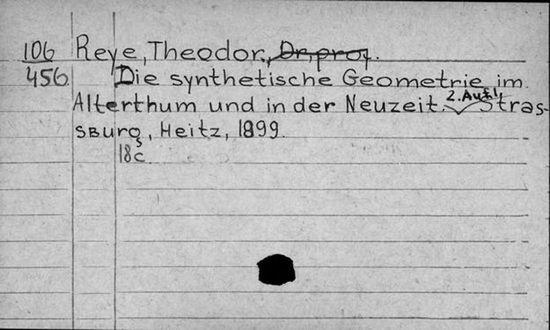 106 Reye, Theodor, Dr, prof.
456 Die synthetische Geometrie im
Alterthum und in der Neuzeit. 2. Aufl. Stras-
sburg, Heitz, 1899.
18 s.